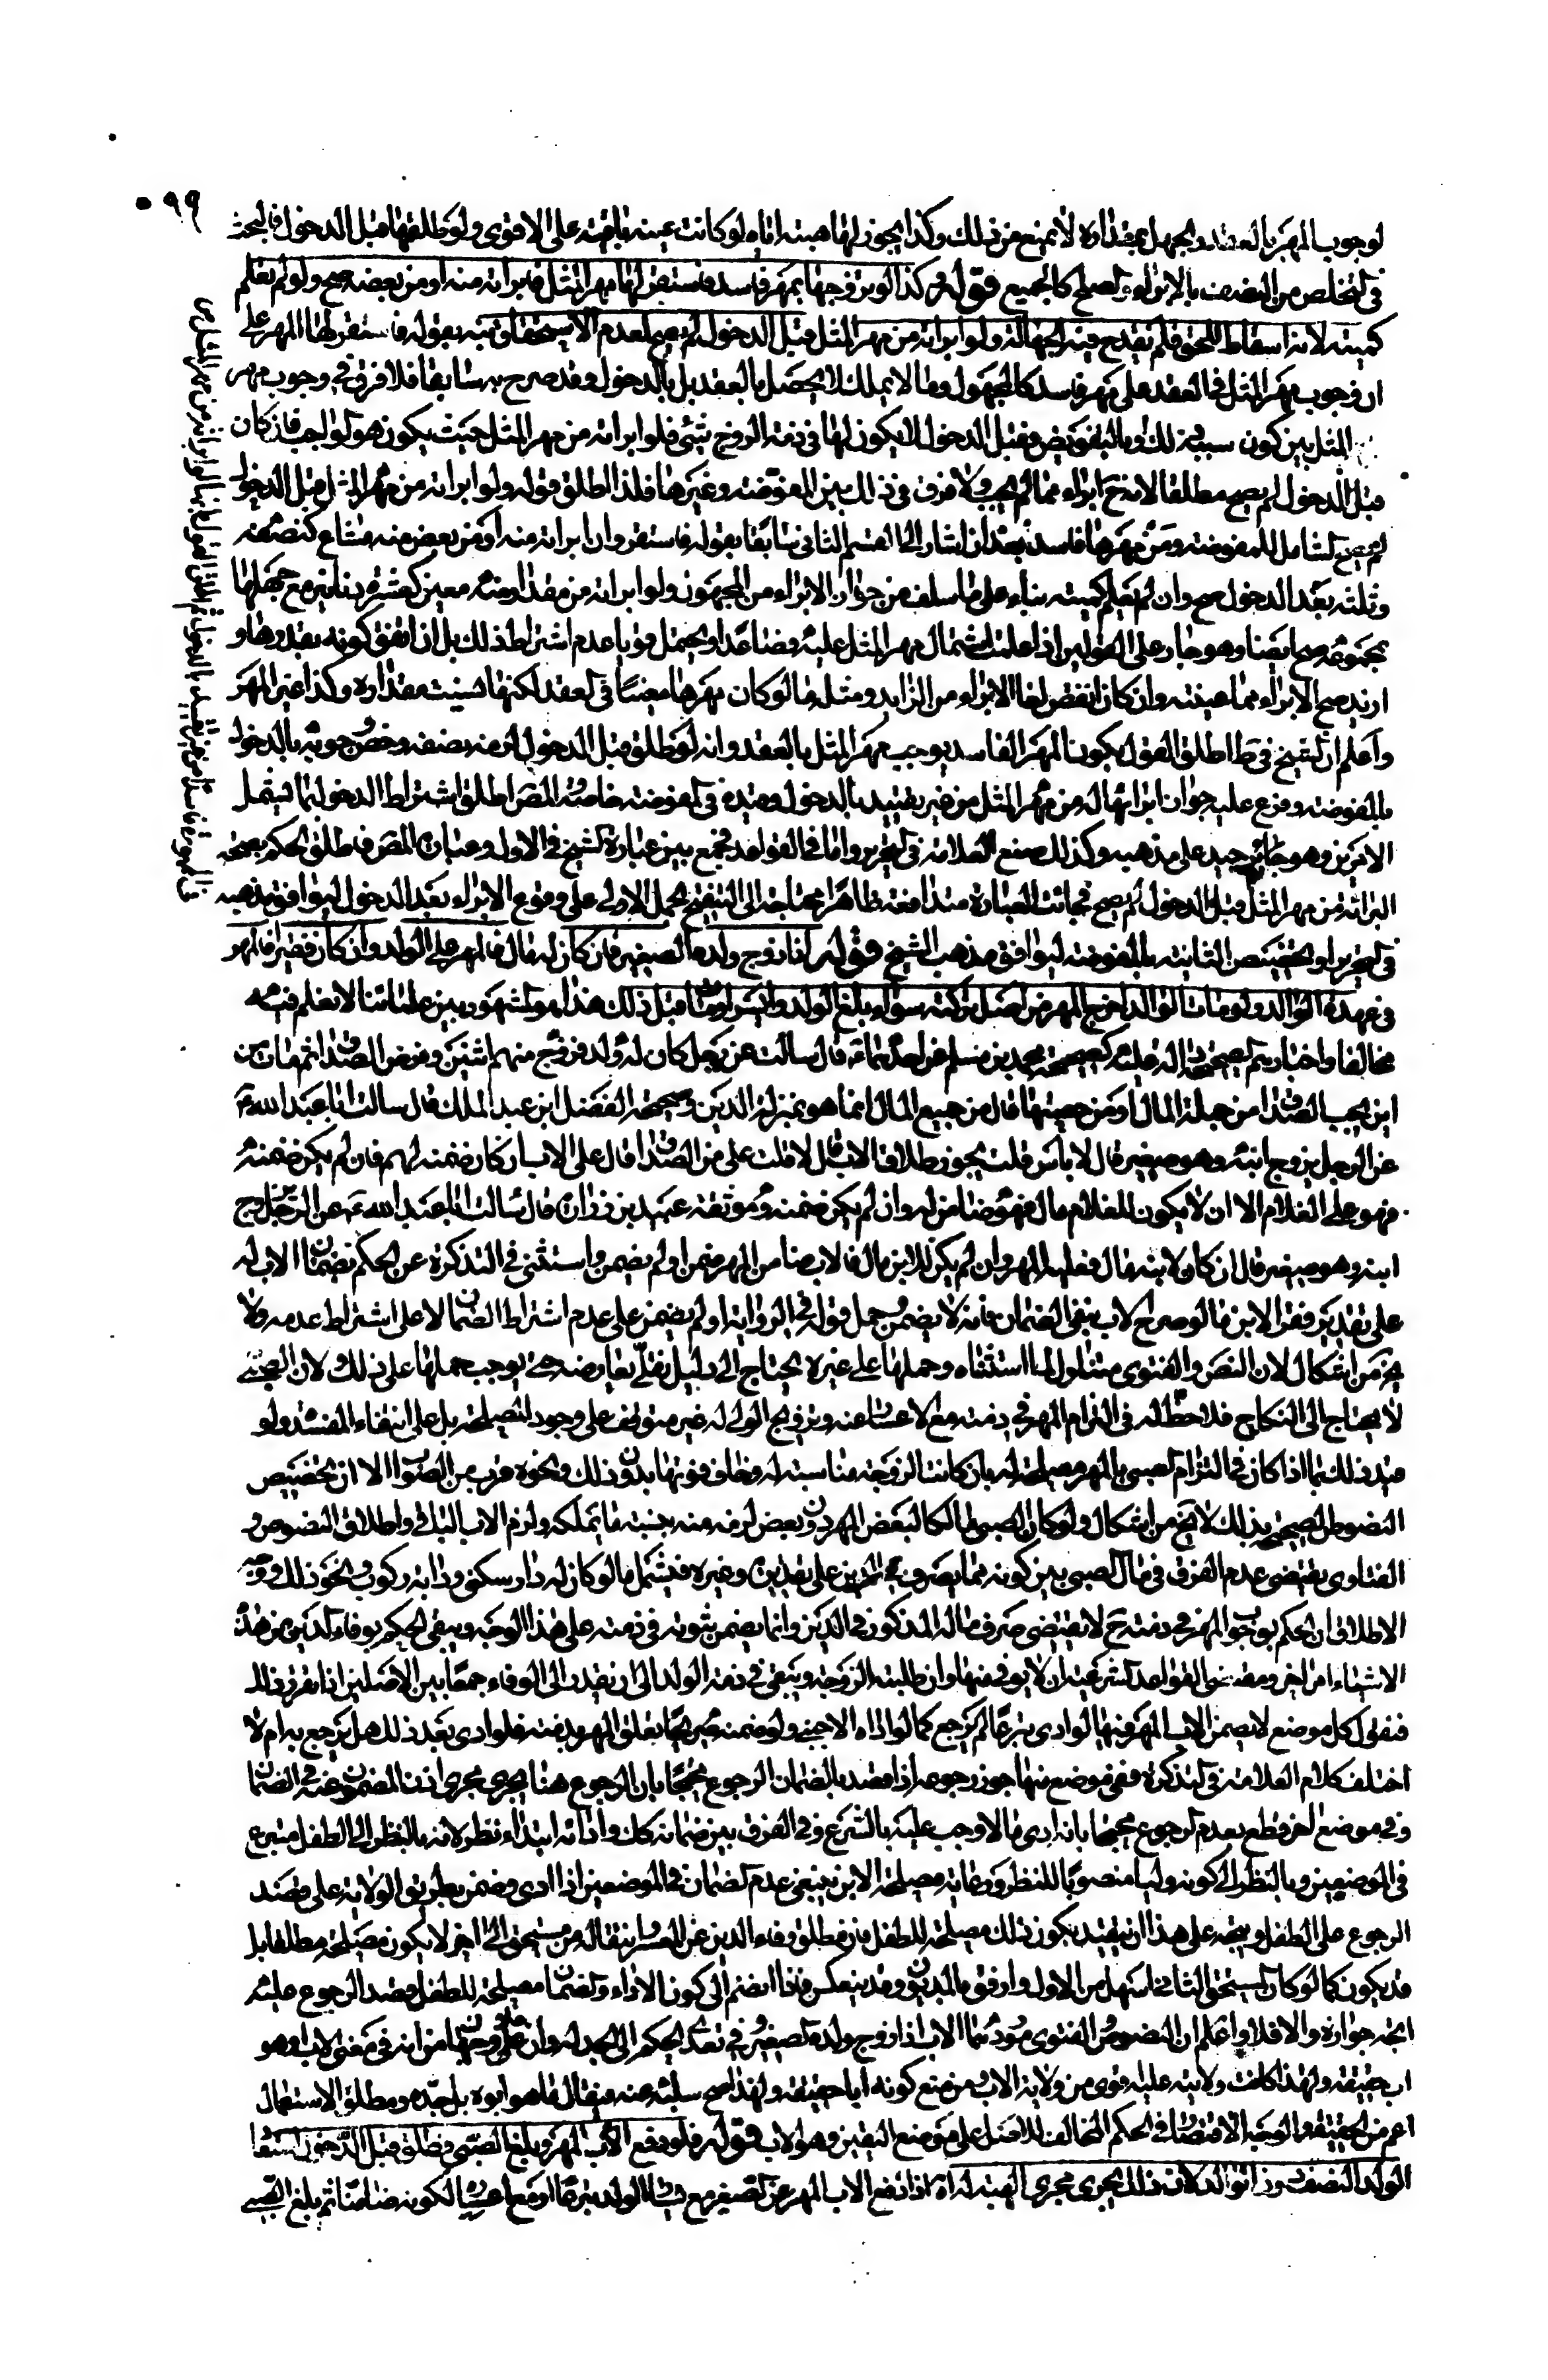 ٩٩
لوجوب المهر بالعقد والجهل بمقداره لا يمنع من ذلك وكذا يجوز لها هبته اياه لو كانت عينه باقية على الاقوى ولو طلقها قبل الدخول فالبحث
في التخلص من النصف بالابراء والصلح كالجميع قوله وكذا لو تزوجها بمهر فاسد فاستقر لها مهر المثل فابراته منه او من بعضه صح ولو لم تعلم
كميته لانه اسقاط للحق فلم يقدح فيه الجهالة ولو ابراته من مهر المثل قبل الدخول لم يصح لعدم الاستحقاق نبه بقوله فاستقر لها المهر على
ان وجوب مهر المثل في العقد على مهر فاسد كالمجهول وما لا يملك لا يحصل بالعقد بل بالدخول وقد صرح به سابقا فلا فرق في وجوب مهر
المثل بين كون سببه ذلك وبالتفويض فقبل الدخول لا يكون لها في ذمة الزوج شيء فلو ابراته من مهر المثل حيث يكون هو الواجب فان كان
قبل الدخول لم يصح مطلقا لانه ح ابراء مما لم يجب ولا فرق في ذلك بين المفوضة وغيرها فلذا اطلق قوله ولو ابراته من مهر المثل قبل الدخول
لم يصح الشامل للمفوضة ومن مهرها فاسد بعد ان اشار الى القسم الثاني سابقا بقوله فاستقر وان ابراته منه او من بعض منه مشاع كنصفه
وثلثه بعد الدخول صح وان لم يعلم كميته بناء على ما سلف من جواز الابراء من المجهول ولو ابراته من مقدار منه معين كعشرة دنانير مع جهلها
بمجموعه صح ايضا وهو جار على القولين اذا علمت اشتمال مهر المثل عليه فصاعدا ويحتمل قويا عدم اشتراط ذلك بل ان اتفق كونه بقدرها او
ازيد صح الابراء مما عينته وان كان انقص لغا الابراء من الزايد ومثله ما لو كان مهرها معينا في العقد لكنها نسيت مقداره وكذا غير المهر
واعلم ان الشيخ في ط اطلق القول بكون المهر الفاسد يوجب مهر المثل بالعقد وانه لو طلق قبل الدخول لزمه نصفه وخص وجوبه بالدخول
بالمفوضة وفرع عليه جواز ابرائها له من مهر المثل من غير تقييد بالدخول وقيده في المفوضة خاصة والمصر اطلق اشتراط الدخول بما يشمل
الامرين وهو جار جيد على مذهبه وكذلك صنع العلامة في التحرير واما في القواعد فجمع بين عبارة الشيخ في الاول وعبارة المصر فاطلق الحكم بصحة
البراءة من مهر المثل قبل الدخول لم يصح فجاءت العبارة متدافعة ظاهرا محتاجة الى التنقيح بحمل الاولى على وقوع الابراء بعد الدخول ليوافق مذهبه
في التحرير او بتخصيص الثانية بالمفوضة ليوافق مذهب الشيخ قوله اذا زوج ولده الصغير فان كان له مال فالمهر على الولد وان كان فقيرا فالمهر
في عهدة الوالد ولو مات الوالد اخرج المهر من اصل تركته سواء بلغ الولد وايسر او مات قبل ذلك هذا هو المشهور بين علمائنا لا نعلم فيه
مخالفا واخبارهم الصحيحة دالة عليه كصحيحة محمد بن مسلم عن احدهما ع قال سالت عن رجل كان له ولد فزوج منهم اثنين وفرض الصداق ثم مات من
اين يحسب الصداق امن جملة المال او من حصتهما قال من جميع المال انما هو بمنزلة الدين وصحيحة الفضل ابن عبد الملك قال سالت ابا عبد الله ع
عن الرجل يزوج ابنه وهو صغير قال لا باس قلت يجوز طلاق الاب قال لا قلت على من الصداق قال على الاب ان كان ضمنه لهم فان لم يكن ضمنه
فهو على الغلام الا ان لا يكون للغلام مال فهو ضامن له وان لم يكن ضمن وموثقة عبيد بن زرارة قال سالت ابا عبد الله ع عن الرجل يزوج
ابنه وهو صغير قال ان كان لابنه مال فعليه المهر وان لم يكن للابن مال فالاب ضامن المهر ضمن او لم يضمن واستثنى في التذكرة عن الحكم بضمان الاب له
على تقدير فقر الابن ما لو صرح الاب بنفي الضمان فانه لا يضمن وحمل قوله في الرواية او لم يضمن على عدم اشتراط الضمان لا على اشتراط عدمه ولا
يخ من اشكال لان النص والفتوى متناول لما استثناه وحملها على غيره يحتاج الى دليل نقلي يعارضه حتى يوجب حملها على ذلك ولان الصبي
لا يحتاج الى النكاح فلا حظ له في التزام المهر في ذمته مع الاعسار عنه وتزويج الولي له غير متوقف على وجود المصلحة بل على انتفاء المفسدة ولو
قيد ذلك بما اذا كان في التزام الصبي بالمهر مصلحة له بان كانت الزوجة مناسبة له وخاف فوتها بدون ذلك ونحوه قرب من الصواب الا ان تخصيص
النصوص الصحيحة بذلك لا يخ من اشكال ولو كان الصبي مالكا لبعض المهر دون بعض لزمه منه بنسبة ما يملكه ولزم الاب الباقي واطلاق النصوص و
الفتاوى يقتضي عدم الفرق في مال الصبي بين كونه مما يصرف في الدين على تقديره وغيره فيشمل ما لو كان له دار سكنى ودابة ركوب ونحو ذلك ووجه
الاطلاق ان الحكم بوجوب المهر في ذمته ح لا يقتضي صرف ماله المذكور في الدين وانما يضمن ثبوته في ذمته على هذا الوجه ويبقى الحكم بوفاء الدين من هذه
الاشياء امر اخر ومقتضى القواعد الشرعية ان لا يوفي منها وان طلبته الزوجة ويبقى في ذمة الولد الى ان يقدر الى الوفاء جمعا بين الاصلين اذا تقرر ذلك
فنقول كل موضع لا يضمن الاب المهر فيه لو ادى تبرعا لم يرجع كما لو اداه الاجنبي ولو ضمنه صريحا تعلق المهر بذمته فلو ادى بعد ذلك هل يرجع به ام لا
اختلف كلام العلامة في التذكرة ففي موضع منها جوز رجوعه اذا قصد بالضمان الرجوع محتجا بان الرجوع هنا يجري مجرى اذن المضمون عنه في الضمان
وفي موضع اخر قطع بعدم الرجوع محتجا بانه ادى مالا وجب عليه بالشرع وفي الفرق بين ضمانه كك وادائه ابتداء نظر لانه بالنظر الى الطفل متبرع
في الموضعين وبالنظر الى كونه وليا منصوبا للنظر ورعاية مصلحة الابن ينبغي عدم الضمان في الموضعين اذا ادى وضمن بطريق الولاية على قصد
الرجوع على الطفل ويتجه على هذا ان يقيد بكون ذلك مصلحة للطفل فان مطلق وفاء الدين عن المعسر وانتقاله من مستحق الى اخر لا يكون مصلحة مطلقا بل
قد يكون كما لو كان المستحق الثاني اسهل من الاول وارفق بالمديون وقد ينعكس فاذا انضم الى كون الاداء والضمان مصلحة للطفل وقصد الرجوع عليه
اتجه جوازه والا فلا واعلم ان النصوص والفتوى موردهما الاب اذا زوج ولده الصغير وفي تعدي الحكم الى الجد له وان علا وجهان من انه في معنى الاب وهو
اب حقيقة ولهذا كانت ولايته عليه اقوى من ولاية الاب ومن منع كونه ابا حقيقة ولهذا صح سلبه عنه فيقال ما هو ابوه بل جده ومطلق الاستعمال
اعم من الحقيقة والوجه الاقتصار في الحكم المخالف للاصل على موضع اليقين وهو الاب قوله فلو دفع الاب المهر وبلغ الصبي فطلق قبل الدخول استعاد
الولد النصف دون الوالد لان ذلك يجري مجرى الهبة له اه اذا دفع الاب المهر عن الصغير مع يسار الولد تبرعا او مع اعساره لكونه ضامنا ثم بلغ الصبي